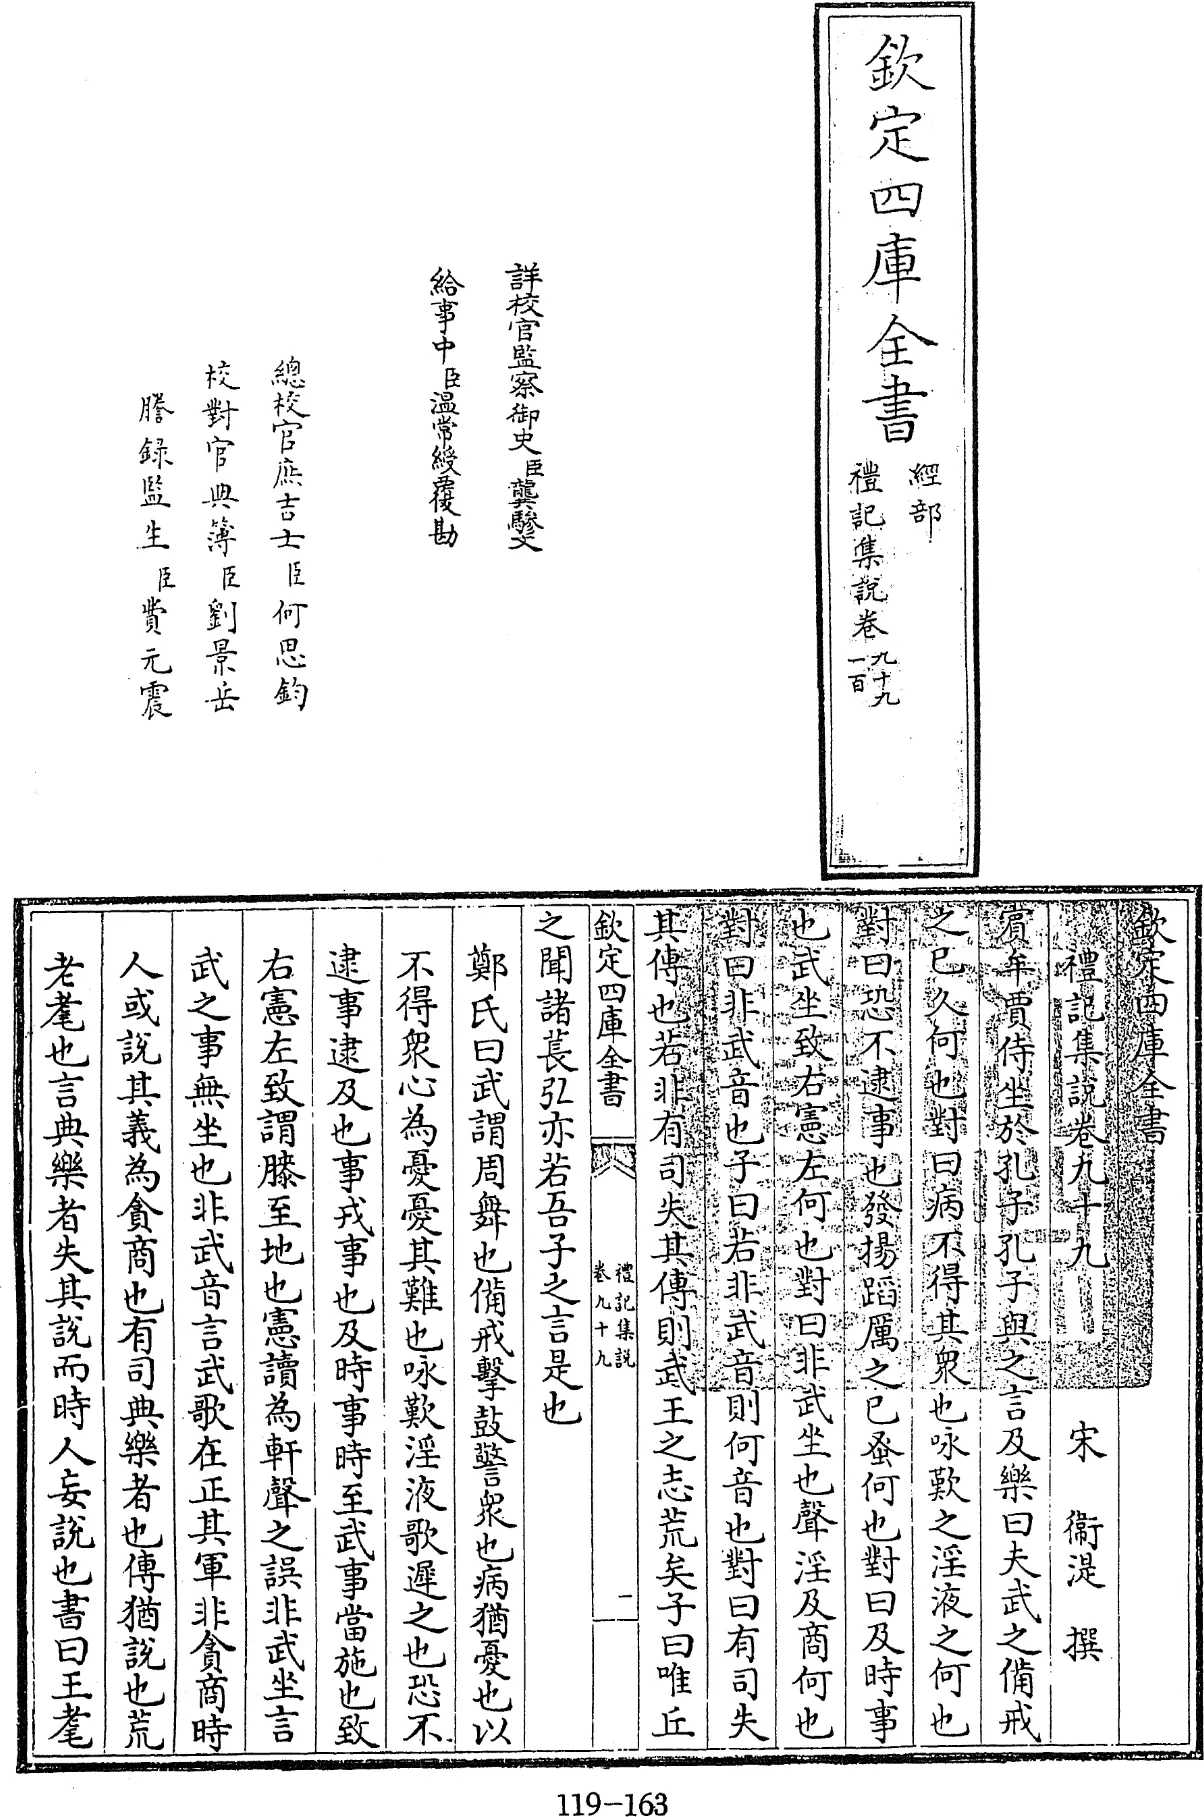 欽定四庫全書
經部
禮記集說卷
九十九
一百
詳校官監察御史臣龔驂文
給事中臣温常綬覆勘
總校官庶吉士臣何思鈞
校對官典簿臣劉景岳
謄錄監生臣費元震
欽定四庫全書
禮記集說卷九十九
宋 衞湜 撰
賓牟賈侍坐於孔子孔子與之言及樂曰夫武之備戒
之已久何也對曰病不得其衆也咏歎之淫液之何也
對曰恐不逮事也發揚蹈厲之已蚤何也對曰及時事
也武坐致右憲左何也對曰非武坐也聲淫及商何也
對曰非武音也子曰若非武音則何音也對曰有司失
其傳也若非有司失其傳則武王之志荒矣子曰唯丘
欽定四庫全書
禮記集說
卷九十九
一
之聞諸萇弘亦若吾子之言是也
鄭氏曰武謂周舞也備戒擊鼓警衆也病猶憂也以
不得衆心為憂憂其難也咏歎淫液歌遲之也恐不
逮事逮及也事戎事也及時事時至武事當施也致
右憲左致謂膝至地也憲讀為軒聲之誤非武坐言
武之事無坐也非武音言武歌在正其軍非貪商時
人或說其義為貪商也有司典樂者也傳猶說也荒
老耄也言典樂者失其說而時人妄說也書曰王耄
119-163